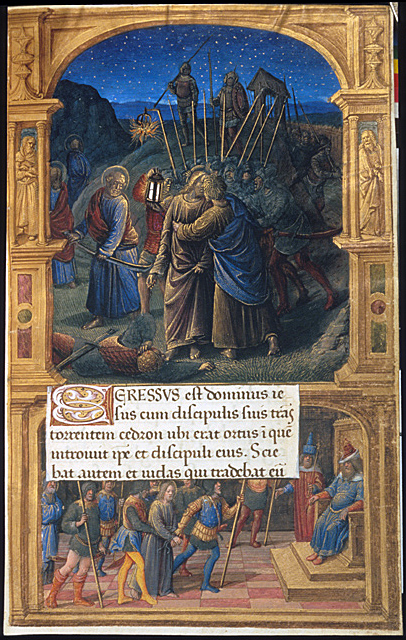 EGRESSVS est dominus ie
sus cum discipulis suis trās
torrentem cedron ubi erat ortus ī quē
introiuit ipē et discipuli eius. Scie
bat autem et iudas qui tradebat eū